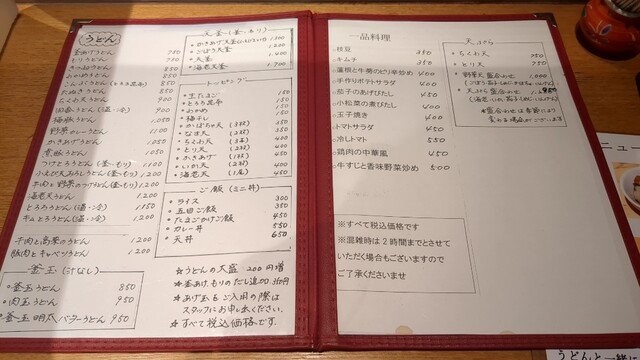 うどん
釜あげうどん 750
もりうどん 750
きつねうどん 850
わかめうどん 850
850
たぬきうどん 850
ちくわ天うどん 900
肉うどん(温・冷) 900
梅豚うどん 1,050
野菜カレーうどん 1100
かきあげうどん 1,050
煮豚うどん 1,050
つけとろうどん(釜・もり) 1100
小えび天おろしうどん(釜・もり) 1,200
きのこと野菜のつけうどん(釜・もり) 1,200
海老天うどん 1,200
とろ牛うどん(温・冷) 1150
牛とろうどん(温・冷) 1200
牛肉と高菜のうどん 1200
豚肉とキャベツうどん 1200
釜玉(汁なし)
釜玉うどん 850
肉玉うどん 950
釜玉明太バターうどん 950
天釜(釜・もり)
かきあげ天釜 1300
ごぼう天釜 1,200
天釜 1,400
海老天釜 1,700
トッピング
生たまご
とろろ昆布 150
わかめ 150
梅干し 150
かぼちゃ天
なす天
ちくわ天
とり天
かきあげ
いか天
海老天
ご飯(ミニ丼)
ライス 300
五目ご飯 350
たまごかけご飯 450
カレー丼 550
天丼 650
★うどんの大盛 200円増
★釜あげ、もりのだし追加 350円
★あげ玉をご入用の際は
スタッフにお申し出ください。
★すべて税込価格です。
一品料理
枝豆 350
キムチ 350
蓮根と牛蒡のピリ辛炒め 400
手作りポテトサラダ 400
茄子のあげびたし 450
小松菜の煮びたし 400
玉子焼き 400
トマトサラダ 450
冷しトマト 550
鶏肉の中華風 450
牛すじと香味野菜炒め 500
※すべて税込価格です
※混雑時は2時間までとさせて
いただく場合もございますので
ご了承くださいませ
天ぷら
ちくわ天 750
とり天 750
野菜天盛合わせ 1,000
天ぷら盛合わせ 1200
※盛合わせは季節により
変わる場合がございます
ニュー
うどんと一緒に